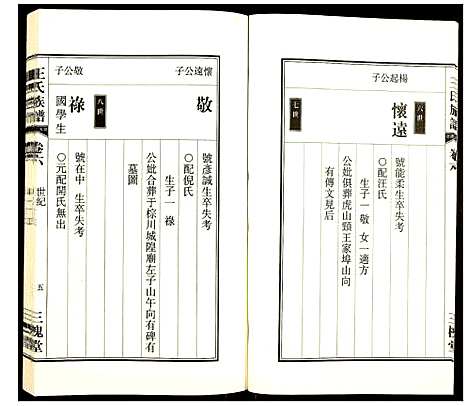 三槐堂
楊起公子
六世
懷遠
號能柔生卒失考
〇配汪氏
生子一敬 女一適方
公妣俱葬虎山頸王家埠山向
有傳文見后
七世
懷遠公子
敬
號彥誠生卒失考
〇配倪氏
生子一祿
公妣合葬于棕川城隍廟左子山午向有碑有
墓圖
八世
敬公子
祿
國學生
號在中 生卒失考
〇元配開氏無出
王氏族譜
卷六
世紀
五
三槐堂